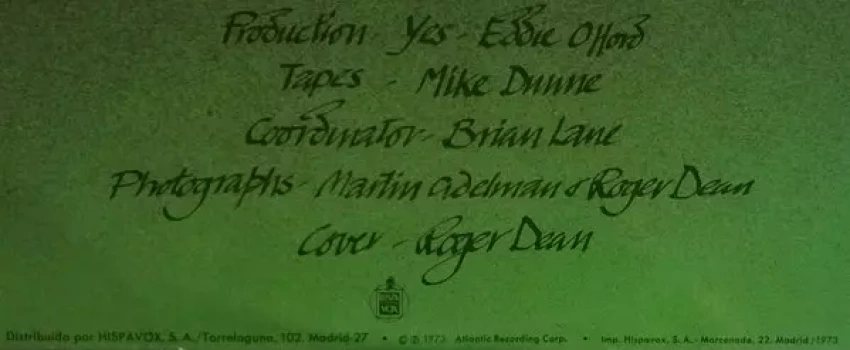 Production - Yes - Eddie Offord
Tapes - Mike Dunne
Coordinator - Brian Lane
Photographs - Martin Adelman & Roger Dean
Cover - Roger Dean
HISPA VOX
Distribuido por HISPAVOX, S. A./Torrelaguna, 102. Madrid-27 • © ℗ 1973 Atlantic Recording Corp. • Imp. Hispavox, S. A. - Marcenado, 22. Madrid/1973